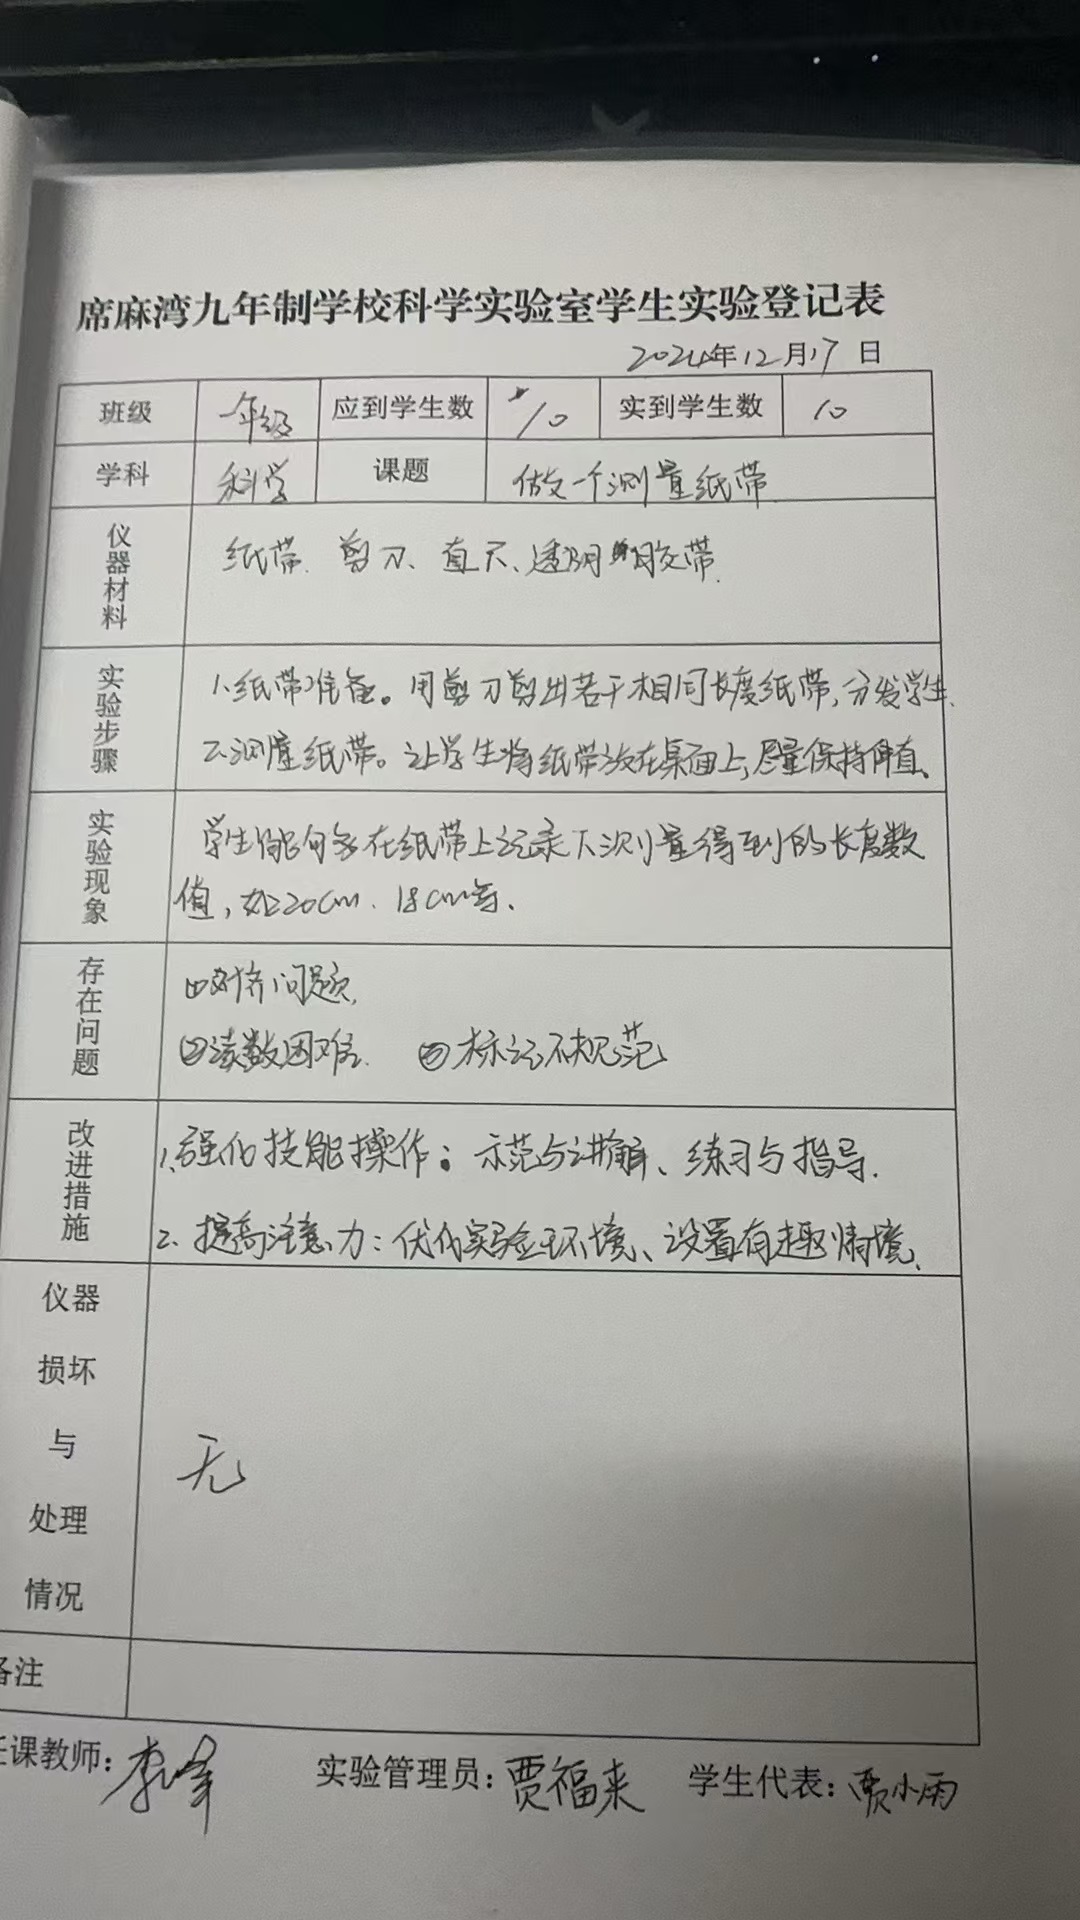 席麻湾九年制学校科学实验室学生实验登记表
2024年12月17日
班级 一年级 应到学生数 10 实到学生数 10
学科 科学 课题 做一个测量纸带
仪器材料 纸带、剪刀、直尺、透明胶带.
实验步骤 1.纸带准备。用剪刀剪出若干相同长度纸带,分发学生.
2.测量纸带。让学生将纸带放在桌面上,尽量保持伸直.
实验现象 学生能够在纸带上记录下测量得到的长度数
值,如20cm、18cm等.
存在问题 ①对齐问题.
②读数困难. ③标记不规范
改进措施 1.强化技能操作:示范与讲解、练习与指导.
2.提高注意力:优化实验环境、设置有趣情境.
仪器
损坏
与
处理
情况
无
备注
任课教师: 实验管理员:贾福来 学生代表:贾小雨